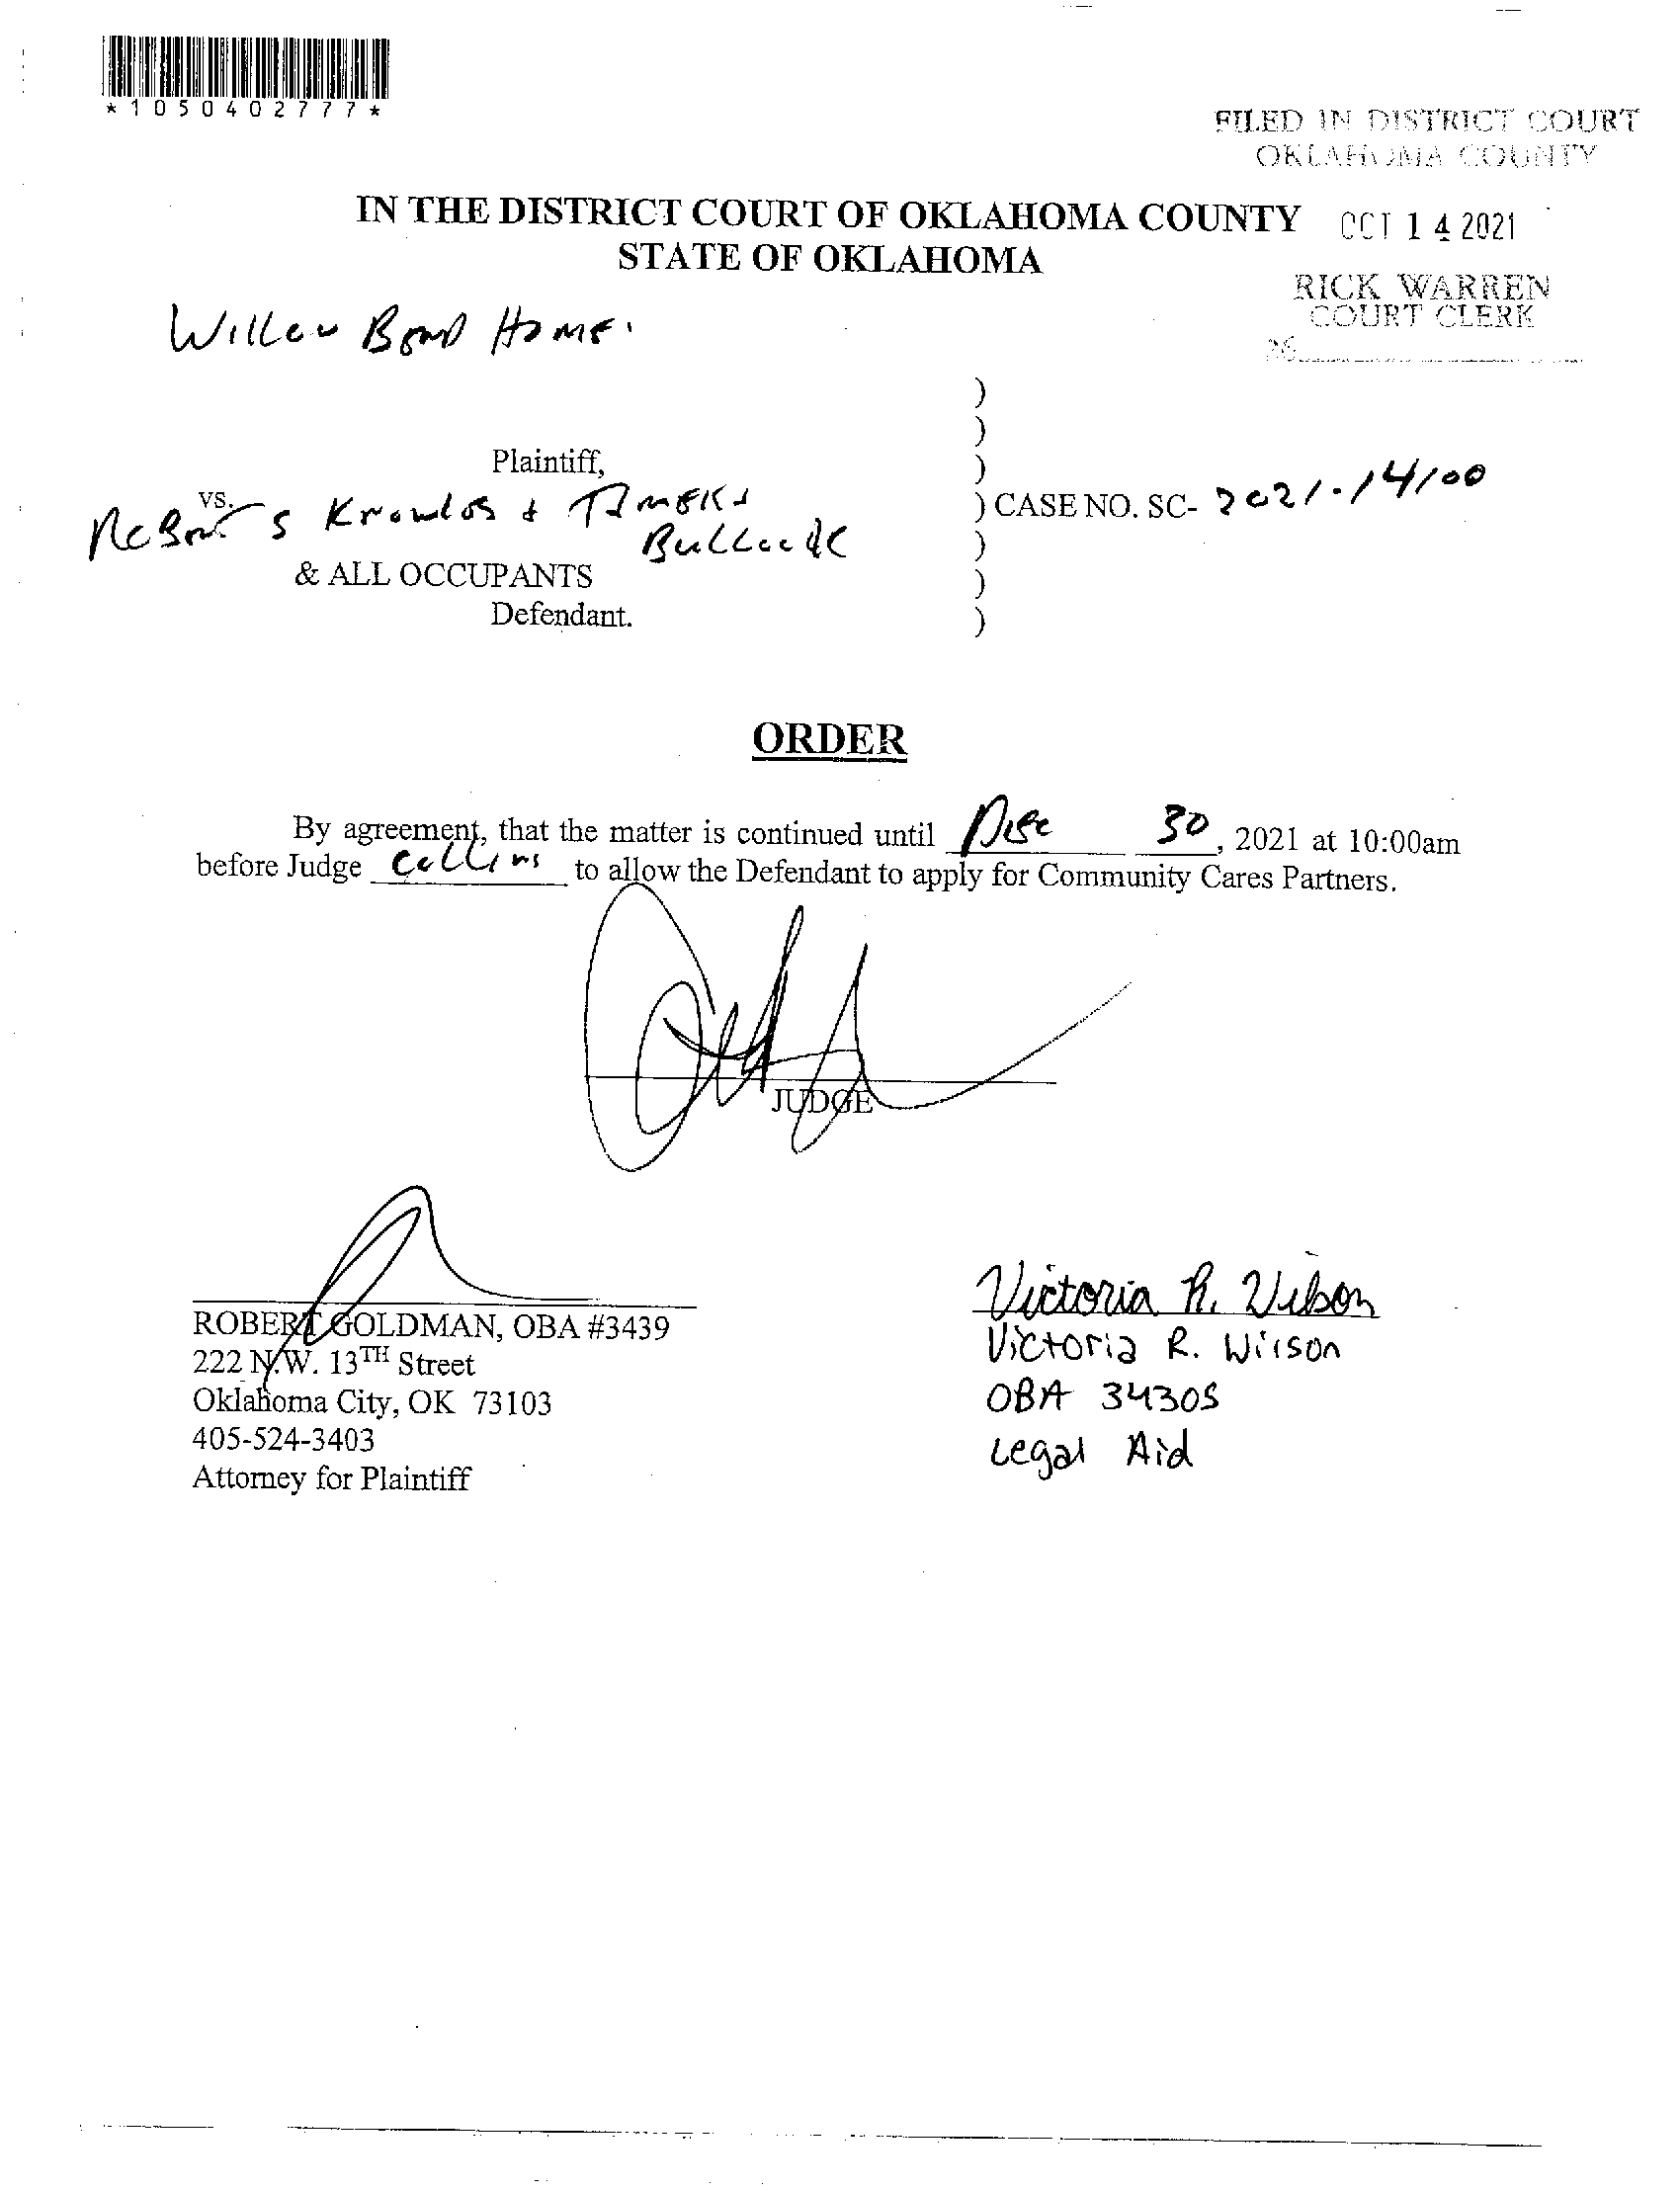 *1050402777*
FILED IN DISTRICT COURT
OKLAHOMA COUNTY
IN THE DISTRICT COURT OF OKLAHOMA COUNTY
OCT 14 2021
STATE OF OKLAHOMA
RICK WARREN
COURT CLERK
Willow Bend Home
)
)
Plaintiff, )
vs. ) CASE NO. SC- 2021-14100
S Knowles & TAMEKA
Bullock )
& ALL OCCUPANTS )
Defendant. )
ORDER
By agreement, that the matter is continued until Dec 30, 2021 at 10:00am
before Judge Collins to allow the Defendant to apply for Community Cares Partners.
JUDGE
ROBERT GOLDMAN, OBA #3439
222 N.W. 13TH Street
Oklahoma City, OK 73103
405-524-3403
Attorney for Plaintiff
Victoria R. Wilson
Victoria R. Wilson
OBA 34305
Legal Aid